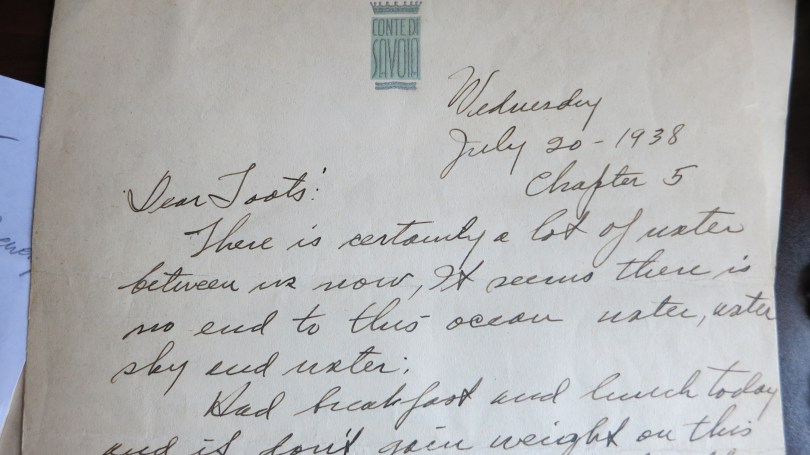 CONTE DI
SAVOIA
Wednesday
July 20 - 1938
Chapter 5
Dear Toots:
There is certainly a lot of water
between us now, It seems there is
no end to this ocean water, water
sky and water.
Had breakfast and lunch today
and if don't gain weight on this